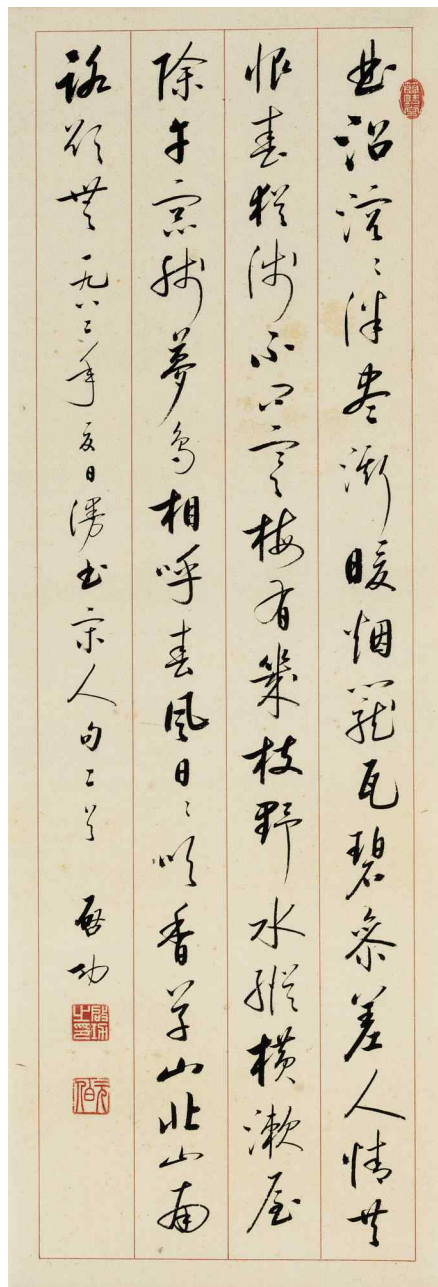 曲沼溶々泮盡澌暖烟籠瓦碧參差人情共
恨春猶淺不問寒梅有幾枝野水縱橫漱屋
除午窗殘夢鳥相呼春風日々吹香草山北山南
路欲無 一九八二年夏日漫書宋人句二首 啟功
啟功之印
元白